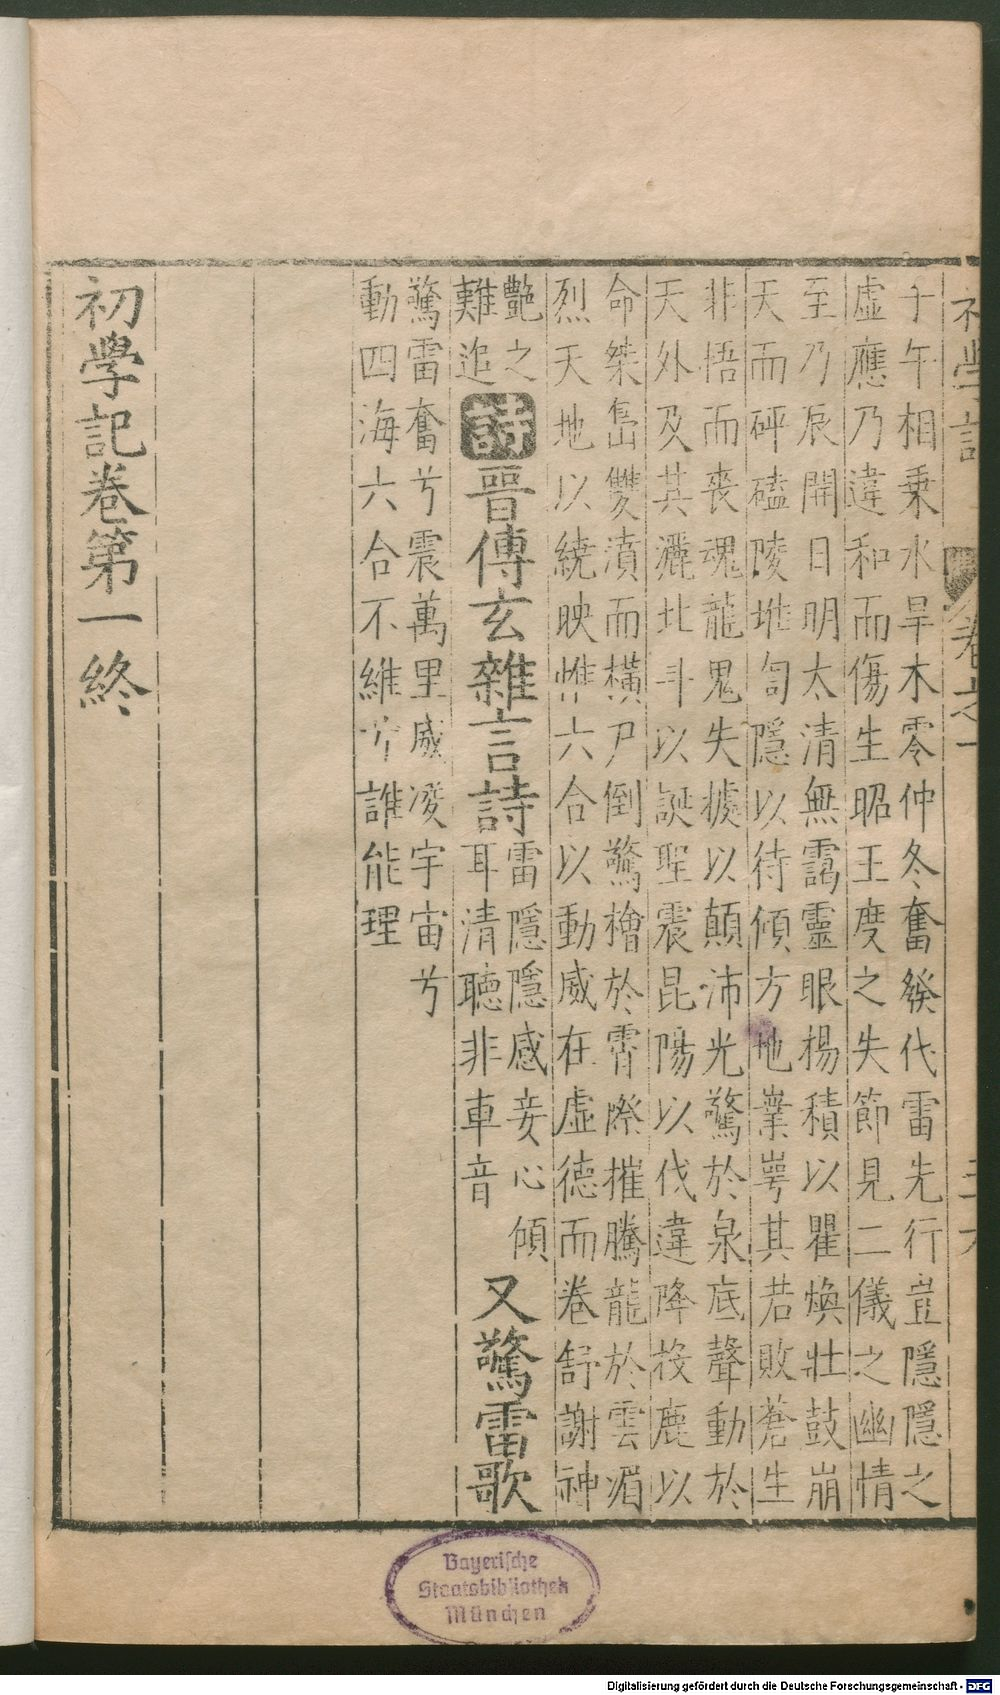 子午相乗水旱木零仲冬奮發代雷先行豈隱隱之
虛應乃違和而傷生昭王度之失節見二儀之幽情
至乃辰開日明太清無靄靈眼揚積以瞿煥壯鼓崩
天而砰磕陵堆訇隱以待傾方地業崿其若敗蒼生
非悟而喪魂龍鬼失據以顛沛光驚於泉底聲動於
天外及其灑北斗以誕聖震昆陽以伐違降投鹿以
命桀島雙濆而橫尸倒驚檜於霄際摧騰龍於雲湄
烈天地以繞映惟六合以動威在虛德而卷舒謝神
艶之
難追
詩
晉傅玄雜言詩
雷隱隱感妾心傾
耳清聽非車音
又驚雷歌
驚雷奮兮震萬里威凌宇宙兮
動四海六合不維兮誰能理
初學記卷第一終
Bayerische
Staatsbibliothek
München
Digitalisierung gefördert durch die Deutsche Forschungsgemeinschaft - DFG